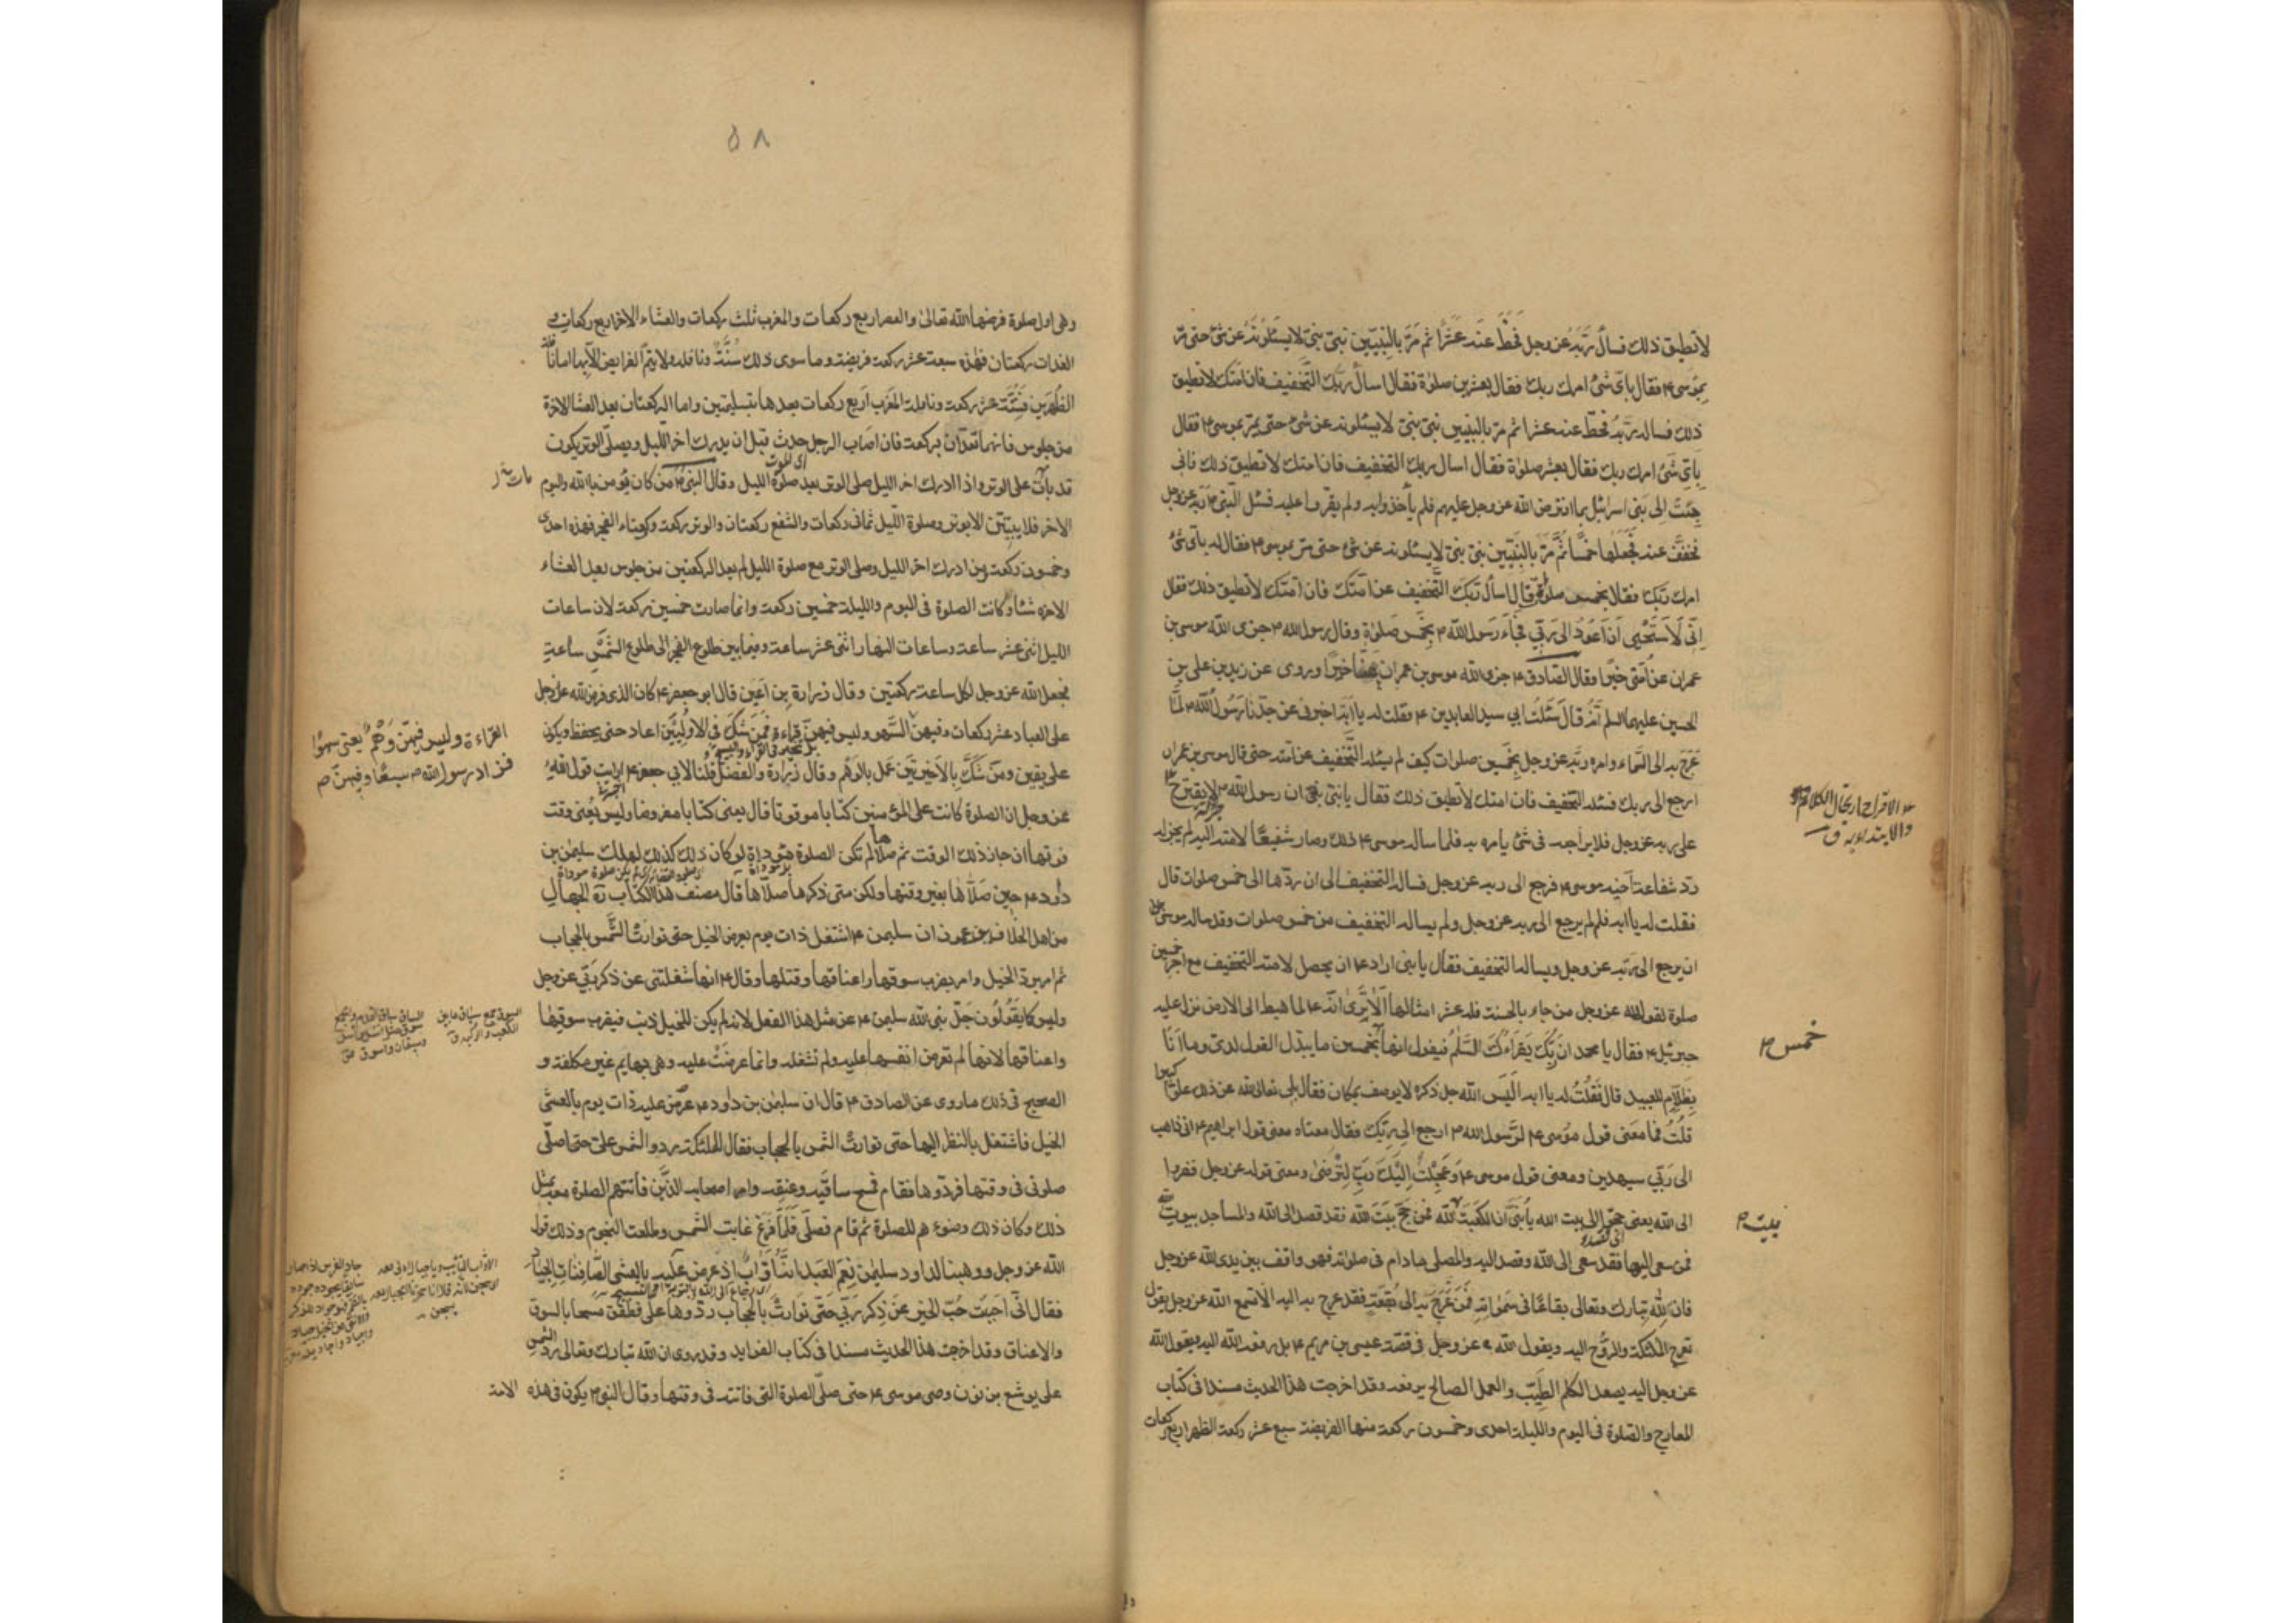 لا تطيق ذلك فسأل ربه عز وجل فحط عنه عشرا ثم مر بالنبيين نبي نبي لا يسئلونه عن شئ حتى مر
بموسى ع فقال باى شئ امرك ربك فقال بعشرين صلوة فقال اسأل ربك التخفيف فان امتك لا تطيق
ذلك فسال ربه فحط عنه عشرا ثم مر بالنبيين نبي نبي لا يسئلونه عن شئ حتى مر بموسى ع فقال
باى شئ امرك ربك فقال بعشر صلوة فقال اسال ربك التخفيف فان امتك لا تطيق ذلك فانى
جئت الى بنى اسرائيل بما افترض الله عز وجل عليهم فلم يأخذوا به ولم يقروا عليه فسئل النبى ص ربه عز وجل
فخفف عنه فجعلها خمسا ثم مر بالنبيين نبي نبي لا يسئلونه عن شئ حتى مر بموسى ع فقال له باى شئ
امرك ربك فقال بخمس صلوة قال اسأل ربك التخفيف عن امتك فان امتك لا تطيق ذلك فقال
انى لاستحيى ان اعود الى ربى فجاء رسول الله ص بخمس صلوة وقال رسول الله ص جزى الله موسى بن
عمران عن امتى خيرا وقال الصادق ع جزى الله موسى بن عمران عنا خيرا وروى عن زيد بن على بن
الحسين عليهما السلم انه قال سئلت ابي سيد العابدين ع فقلت له يا ابه اخبرنى عن جدنا رسول الله ص لما
عرج به الى السماء وامره ربه عز وجل بخمسين صلوات كيف لم يسئله التخفيف عن امته حتى قال موسى بن عمران
ارجع الى ربك فسئله التخفيف فان امتك لا تطيق ذلك فقال يا بنى ان رسول الله ص لا يقترح
على ربه عز وجل فلا يراجعه فى شئ يامره به فلما ساله موسى ع ذلك وصار شفيعا لامته اليه لم يجز له
رد شفاعة اخيه موسى ع فرجع الى ربه عز وجل فساله التخفيف الى ان ردها الى خمس صلوات قال
فقلت له يا ابه فلم لم يرجع الى ربه عز وجل ولم يساله التخفيف من خمس صلوات وقد ساله موسى ع
ان يرجع الى ربه عز وجل ويساله التخفيف فقال يا بنى اراد ع ان يحصل لامته التخفيف مع اجر خمسين
صلوة لقول الله عز وجل من جاء بالحسنة فله عشر امثالها الا ترى انه ع لما هبط الى الارض نزل عليه
جبرئيل ع فقال يا محمد ان ربك يقرءك السلم فيقول انها بخمسين ما يبدل القول لدى وما انا
بظلام للعبيد قال فقلت له يا ابه اليس الله جل ذكره لا يوصف بمكان فقال بلى تعالى الله عن ذلك علوا كبيرا
قلت فما معنى قول موسى ع لرسول الله ص ارجع الى ربك فقال معناه معنى قول ابراهيم ع انى ذاهب
الى ربى سيهدين ومعنى قول موسى ع وعجلت اليك رب لترضى ومعنى قوله عز وجل ففروا
الى الله يعنى حجوا الى بيت الله يا بنى ان الكعبة لله فمن حج بيت الله فقد قصد الى الله والمساجد بيوت الله
فمن سعى اليها فقد سعى الى الله وقصد اليه والمصلى مادام فى صلوته فهو واقف بين يدى الله عز وجل
فان لله تبارك وتعالى بقاعا فى سمواته فمن عرج به الى بقعة فقد عرج به اليه الا تسمع الله عز وجل يقول
تعرج الملئكة والروح اليه ويقول الله عز وجل فى قصة عيسى بن مريم ع بل رفعه الله اليه ويقول الله
عز وجل اليه يصعد الكلم الطيب والعمل الصالح يرفعه وقد اخرجت هذا الحديث مسندا فى كتاب
المعارج والصلوة فى اليوم والليلة احدى وخمسون ركعة منها الفريضة سبع عشر ركعة الظهر اربع ركعات
خمس ص
بيت ص
٥٨
وهى اول صلوة فرضها الله تعالى والعصر اربع ركعات والمغرب ثلث ركعات والعشاء الاخر اربع ركعات و
الغداة ركعتان فهذه سبعة عشر ركعة فريضة وما سوى ذلك سنة ونافلة ولا يتم الفرايض الا بها اما نافلة
الظهرين فستة عشر ركعة ونافلة المغرب اربع ركعات بعدها بتسليمتين واما الركعتان بعد العشا الاخرة
من جلوس فانهما تعدان بركعة فان اصاب الرجل حدث قبل ان يدرك اخر الليل ويصلى الوتر يكون
قد بات على الوتر واذا ادرك اخر الليل صلى الوتر بعد صلوة الليل وقال النبى ص من كان يؤمن بالله واليوم
الاخر فلا يبيتن الا بوتر وصلوة الليل ثمانى ركعات والشفع ركعتان والوتر ركعة وركعتا الفجر فهذه احدى
وخمسون ركعة ومن ادرك اخر الليل وصلى الوتر مع صلوة الليل لم يعد الركعتين من جلوس بعد العشاء
الاخرة شئا وكانت الصلوة فى اليوم والليلة خمسين ركعة وانما صارت خمسين ركعة لان ساعات
الليل اثنى عشر ساعة وساعات النهار اثنى عشر ساعة وفيما بين طلوع الفجر الى طلوع الشمس ساعة
فجعل الله عز وجل لكل ساعة ركعتين وقال زرارة بن اعين قال ابو جعفر ع كان الذى فرض الله عز وجل
على العباد عشر ركعات وفيهن السهو وليس فيهن قراءة فمن شك فى الاوليين اعاد حتى يحفظ ويكون
على يقين ومن شك بالاخيرتين عمل بالوهم وقال زرارة والفضل قلنا لابي جعفر ع ارايت قول الله
عز وجل ان الصلوة كانت على المؤمنين كتابا موقوتا قال يعنى كتابا مفروضا وليس يعنى وقت
فوتها ان جاز ذلك الوقت ثم صلاها لم تكن الصلوة موداة لو كان ذلك كذلك لهلك سليمن بن
داود ع حين صلاها بغير وقتها ولكن متى ذكرها صلاها قال مصنف هذا الكتاب ره الجهال
من اهل الخلاف يزعمون ان سليمن ع اشتغل ذات يوم بعرض الخيل حتى توارت الشمس بالحجاب
ثم امر برد الخيل وامر بضرب سوقها واعناقها وقتلها وقال ع انها شغلتنى عن ذكر ربي عز وجل
وليس كما يقولون جل نبى الله سليمن ع عن مثل هذا الفعل لانه لم يكن للخيل ذنب فيضرب سوقها
واعناقها لانها لم تعرض انفسها عليه ولم تشغله وانما عرضت عليه وهى بهايم غير مكلفة و
الصحيح فى ذلك ما روى عن الصادق ع قال ان سليمن بن داود ع عرض عليه ذات يوم بالعشى
الخيل فاشتغل بالنظر اليها حتى توارت الشمس بالحجاب فقال للملئكة ردوا الشمس على حتى اصلى
صلوتى فى وقتها فردوها فقام فمسح ساقيه وعنقه وامر اصحابه الذين فاتتهم الصلوة معه بمثل
ذلك وكان ذلك وضوءهم للصلوة ثم قام فصلى فلما فرغ غابت الشمس وطلعت النجوم وذلك قول
الله عز وجل ووهبنا لداود سليمن نعم العبد انه اواب اذ عرض عليه بالعشى الصافنات الجياد
فقال انى احببت حب الخير عن ذكر ربى حتى توارت بالحجاب ردوها على فطفق مسحا بالسوق
والاعناق وقد اخرجت هذا الحديث مسندا فى كتاب الفوايد وقد روى ان الله تبارك وتعالى رد الشمس
على يوشع بن نون وصى موسى ع حتى صلى الصلوة التى فاتته فى وقتها وقال النبى ص يكون فى هذه
الامة
القراءة وليس فيهن وهم يعنى سهوا
فزاد رسول الله ص سبعا وفيهن